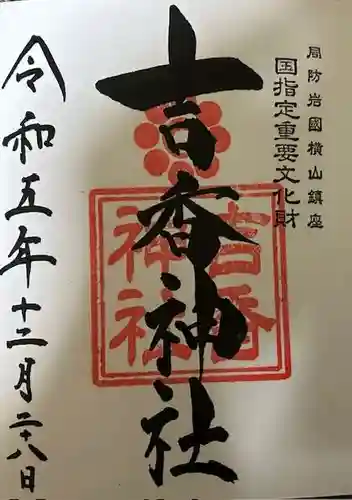 周防岩國横山鎮座
国指定重要文化財
吉香神社
吉香神社
令和五年十二月二十八日